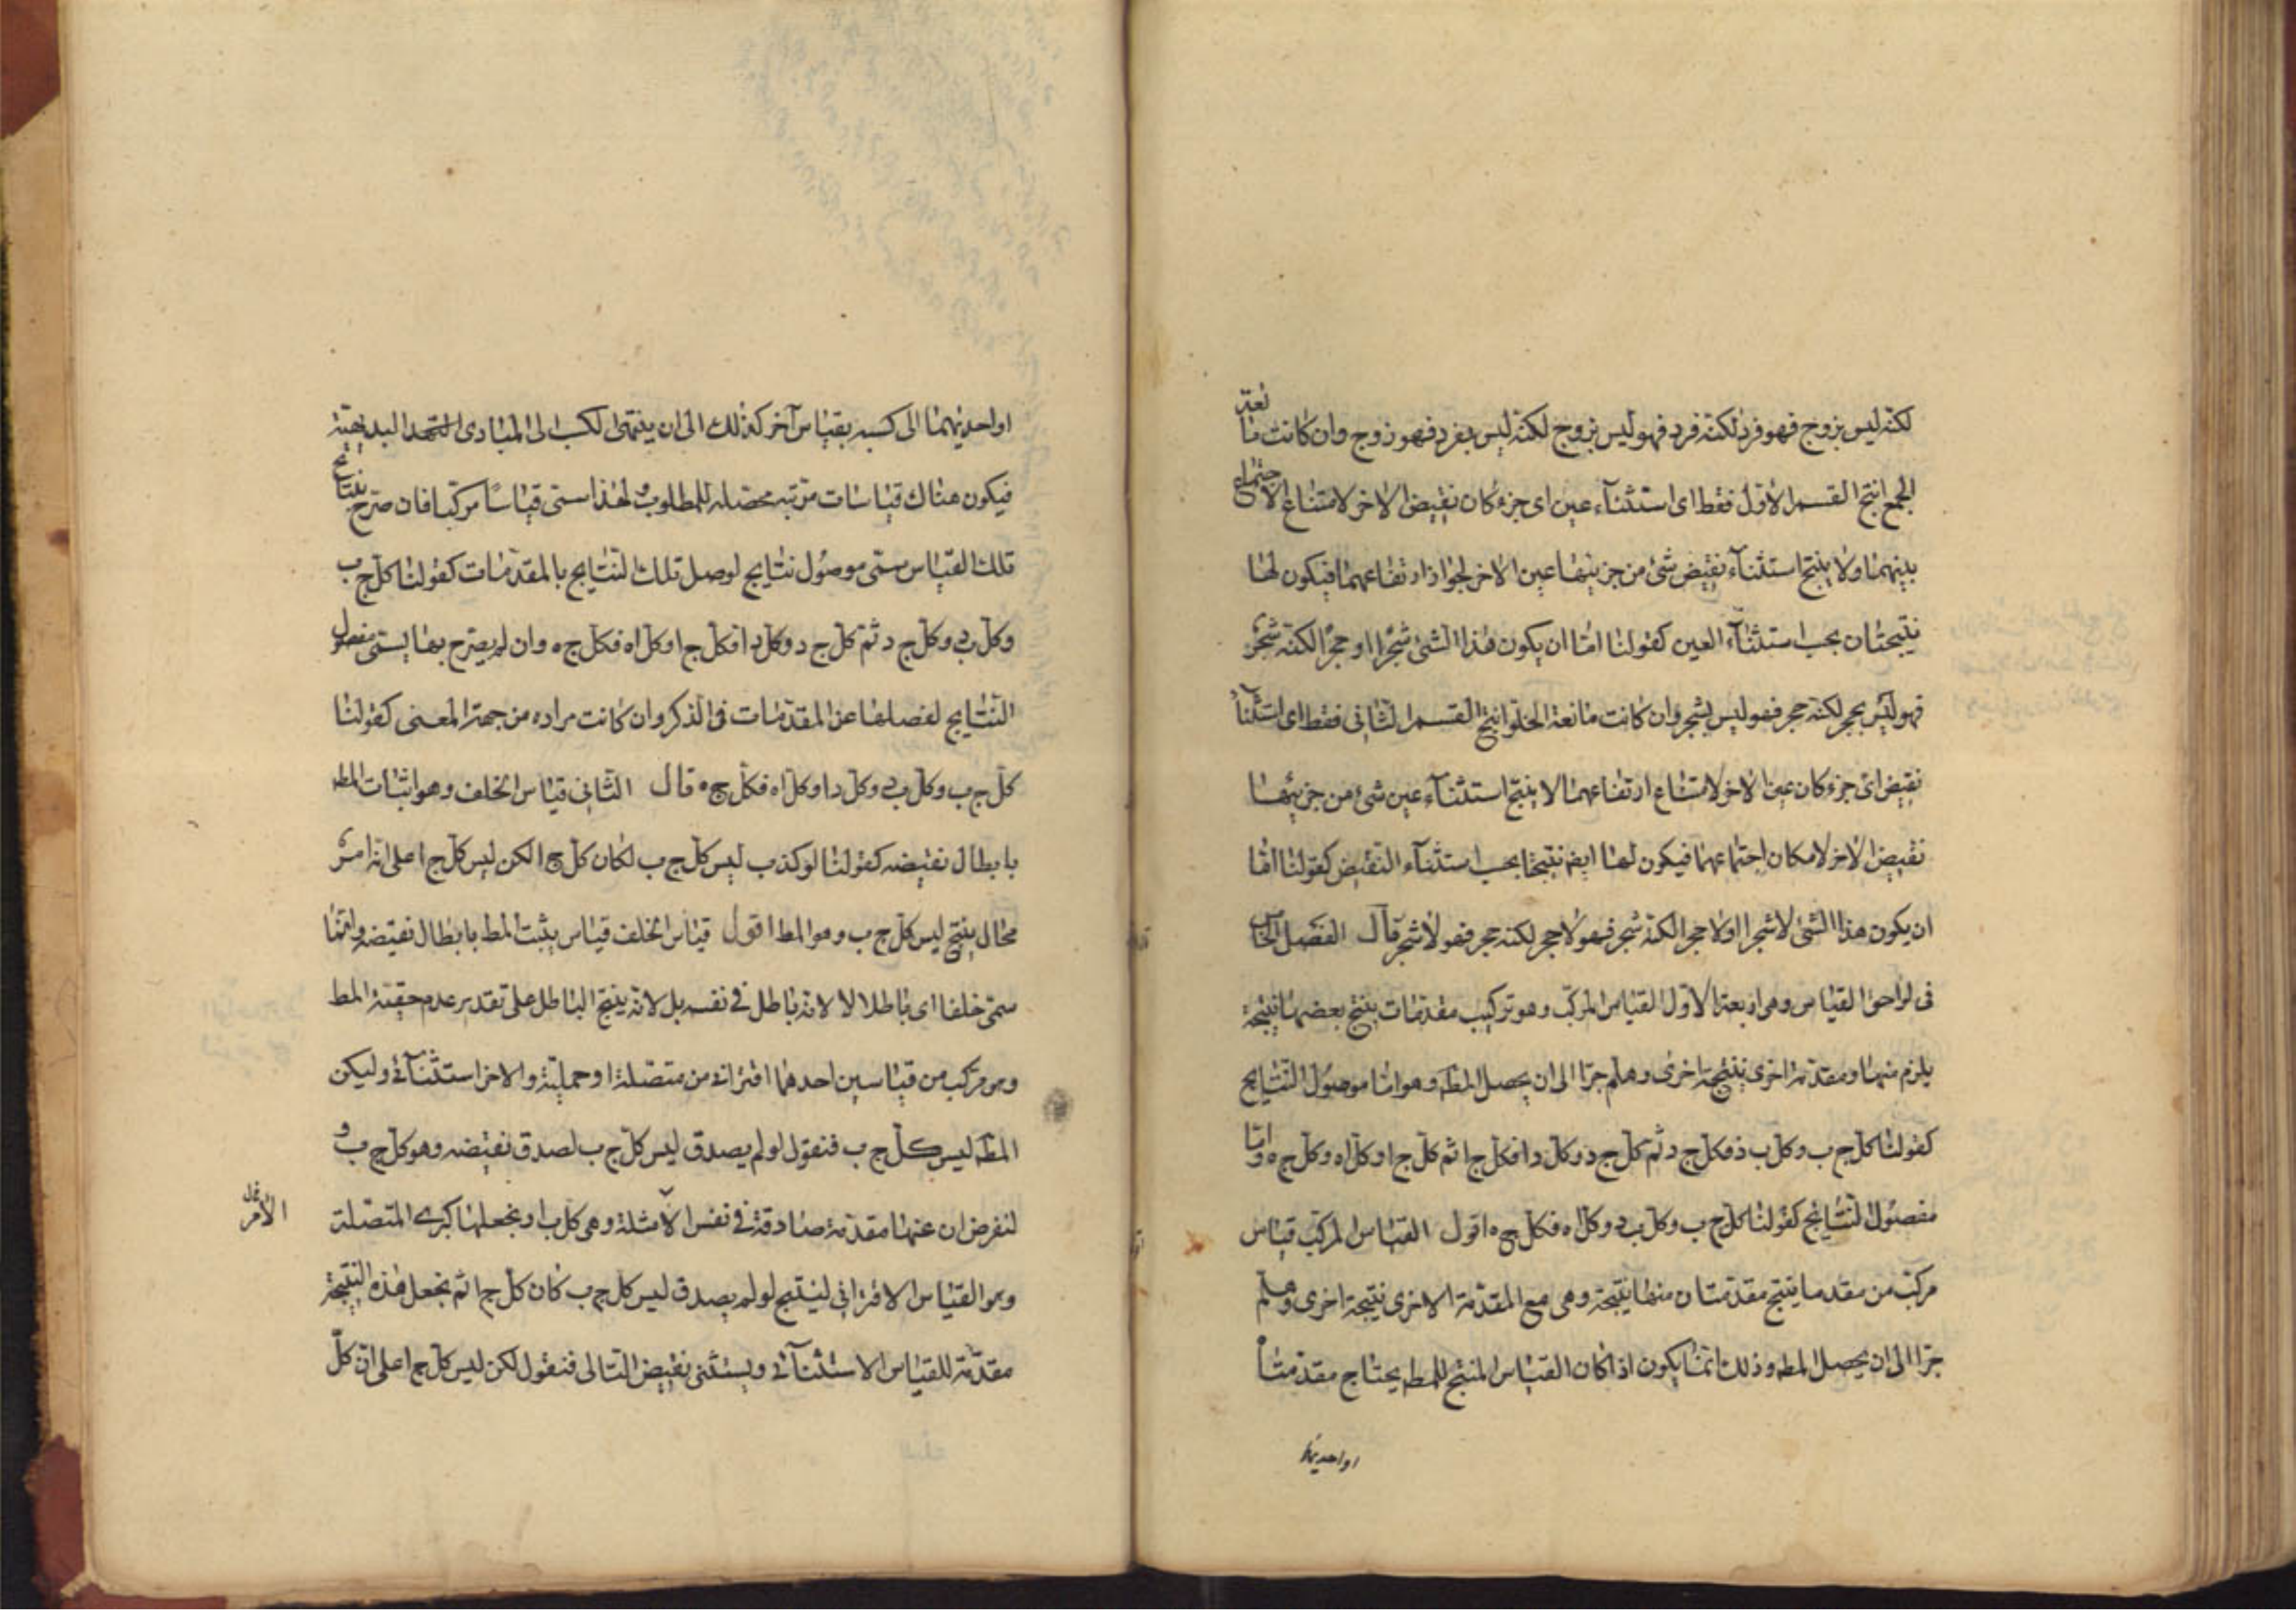 لكنه ليس بزوج فهو فرد لكنه فرد فهو ليس بزوج لكنه ليس بفرد فهو زوج وان كانت مانعة
الجمع انتج القسم الاول فقط اى استثناء عين اى جزء كان نقيض الاخر لامتناع الاجتماع
بينهما ولا ينتج استثناء نقيض شئ من جزئيها عين الاخر لجواز ارتفاعهما فيكون لها
نتيجتان بحسب استثناء العين كقولنا اما ان يكون هذا الشئ شجرا او حجرا لكنه شجر
فهو ليس بحجر لكنه حجر فهو ليس بشجر وان كانت مانعة الخلو انتج القسم الثانى فقط اى استثناء
نقيض اى جزء كان عين الاخر لامتناع ارتفاعهما لا ينتج استثناء عين شئ من جزئيها
نقيض الاخر لامكان اجتماعهما فيكون لها ايضا نتيجتا بحسب استثناء النقيض كقولنا اما
ان يكون هذا الشئ لاشجرا اولا حجرا لكنه شجر فهو لاحجر لكنه حجر فهو لاشجر قال الفصل الخامس
فى لواحق القياس وهى اربعة الاول القياس المركب وهو تركيب مقدمات ينتج بعضها نتيجة
يلزم منها ومقدمة اخرى نتيجة اخرى وهلم جرا الى ان يحصل المط وهو اما موصول النتايج
كقولنا كل ج ب وكل ب د فكل ج د ثم كل ج د وكل د ا فكل ج ا ثم كل ج ا وكل ا ه وكل ج ه واما
مفصول النتايج كقولنا كل ج ب وكل ب د وكل ا ه فكل ج ه اقول القياس المركب قياس
مركب من مقدما ينتج مقدمتان منها نتيجة وهى مع المقدمة الاخرى نتيجة اخرى وهلم
جرا الى ان يحصل المط وذلك انما يكون اذا كان القياس المنتج للمط يحتاج مقدمتا
او احديهما
او احديهما الى كسبه بقياس آخر كذلك الى ان ينتهى الكسب الى المبادى البديهية
فيكون هناك قياسات مرتبه محصله للمطلوب ولهذا سمى قياسا مركبا فان صرح بنتائج
تلك القياس سمى موصول نتايج لوصل تلك النتايج بالمقدمات كقولنا كل ج ب
وكل ب د وكل ج د ثم كل ج د وكل د ا فكل ج ا وكل ا ه فكل ج ه وان لم يصرح بها يسمى مفصول
النتايج لفصلها عن المقدمات فى الذكر وان كانت مراده من جهة المعنى كقولنا
كل ج ب وكل ب د وكل د ا وكل ا ه فكل ج ه قال الثانى قياس الخلف وهو اثبات المط
بابطال نقيضه كقولنا لو كذب ليس كل ج ب لكان كل ج ا لكن ليس كل ج ا على انه امر
محال ينتج ليس كل ج ب وهو المط اقول قياس الخلف قياس يثبت المط بابطال نقيضه وانما
سمى خلفا اى باطلا لا لانه باطل فى نفسه بل لانه ينتج الباطل على تقدير عدم حقية المط
وهو مركب من قياسين احدهما اقترانى من متصلة او حملية والاخر استثنائى وليكن
المط ليس كل ج ب فنقول لو لم يصدق ليس كل ج ب لصدق نقيضه وهو كل ج ب و
لنفرض ان عنها مقدمة صادقة فى نفس الامثلة وهى كل ب ا ونجعلها كبرى المتصلة
الامر
وهو القياس الاقترانى لينتج لو لم يصدق ليس كل ج ب كان كل ج ا ثم نجعل هذه النتيجة
مقدمة للقياس الاستثنائى ويستثنى نقيض التالى فنقول لكن ليس كل ج ا على ان كل